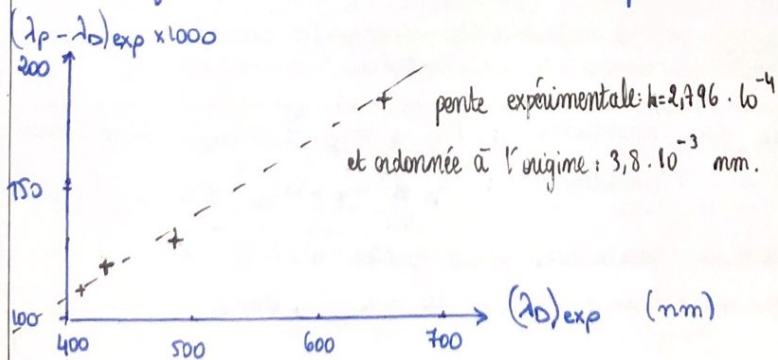 (λp - λD)exp x1000
200
pente expérimentale: h=2,796 · 10⁻⁴
et ordonnée à l'origine : 3,8 · 10⁻³ nm.
150
100
400 500 600 700
(λD)exp (nm)